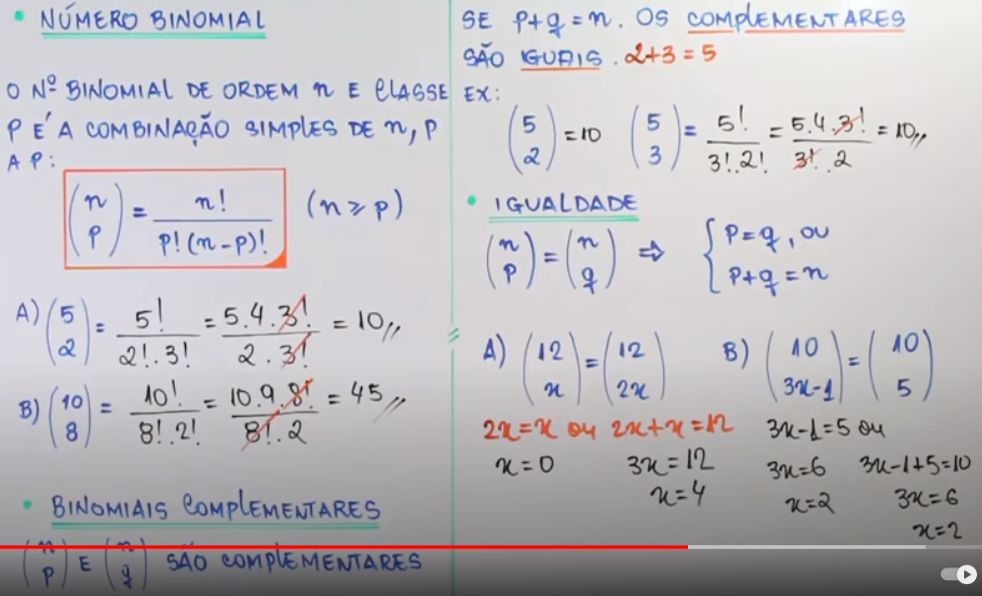 • NÚMERO BINOMIAL
O Nº BINOMIAL DE ORDEM n E CLASSE
P É A COMBINAÇÃO SIMPLES DE n, P
A P:
(n P) = n! / P!(n-P)! (n ≥ P)
A) (5 2) = 5! / 2!.3! = 5.4.3! / 2.3! = 10,,
B) (10 8) = 10! / 8!.2! = 10.9.8! / 8!.2 = 45,,
• BINOMIAIS COMPLEMENTARES
(n P) E (n q) SÃO COMPLEMENTARES
SE P+q=n. OS COMPLEMENTARES
SÃO IGUAIS. 2+3=5
EX:
(5 2) = 10 (5 3) = 5! / 3!.2! = 5.4.3! / 3!.2 = 10,,
• IGUALDADE
(n P) = (n q) ⇒ { P=q, ou
P+q=n
A) (12 x) = (12 2x)
2x=x ou 2x+x=12
x=0 3x=12
x=4
B) (10 3x-1) = (10 5)
3x-1=5 ou
3x=6 3x-1+5=10
x=2 3x=6
x=2